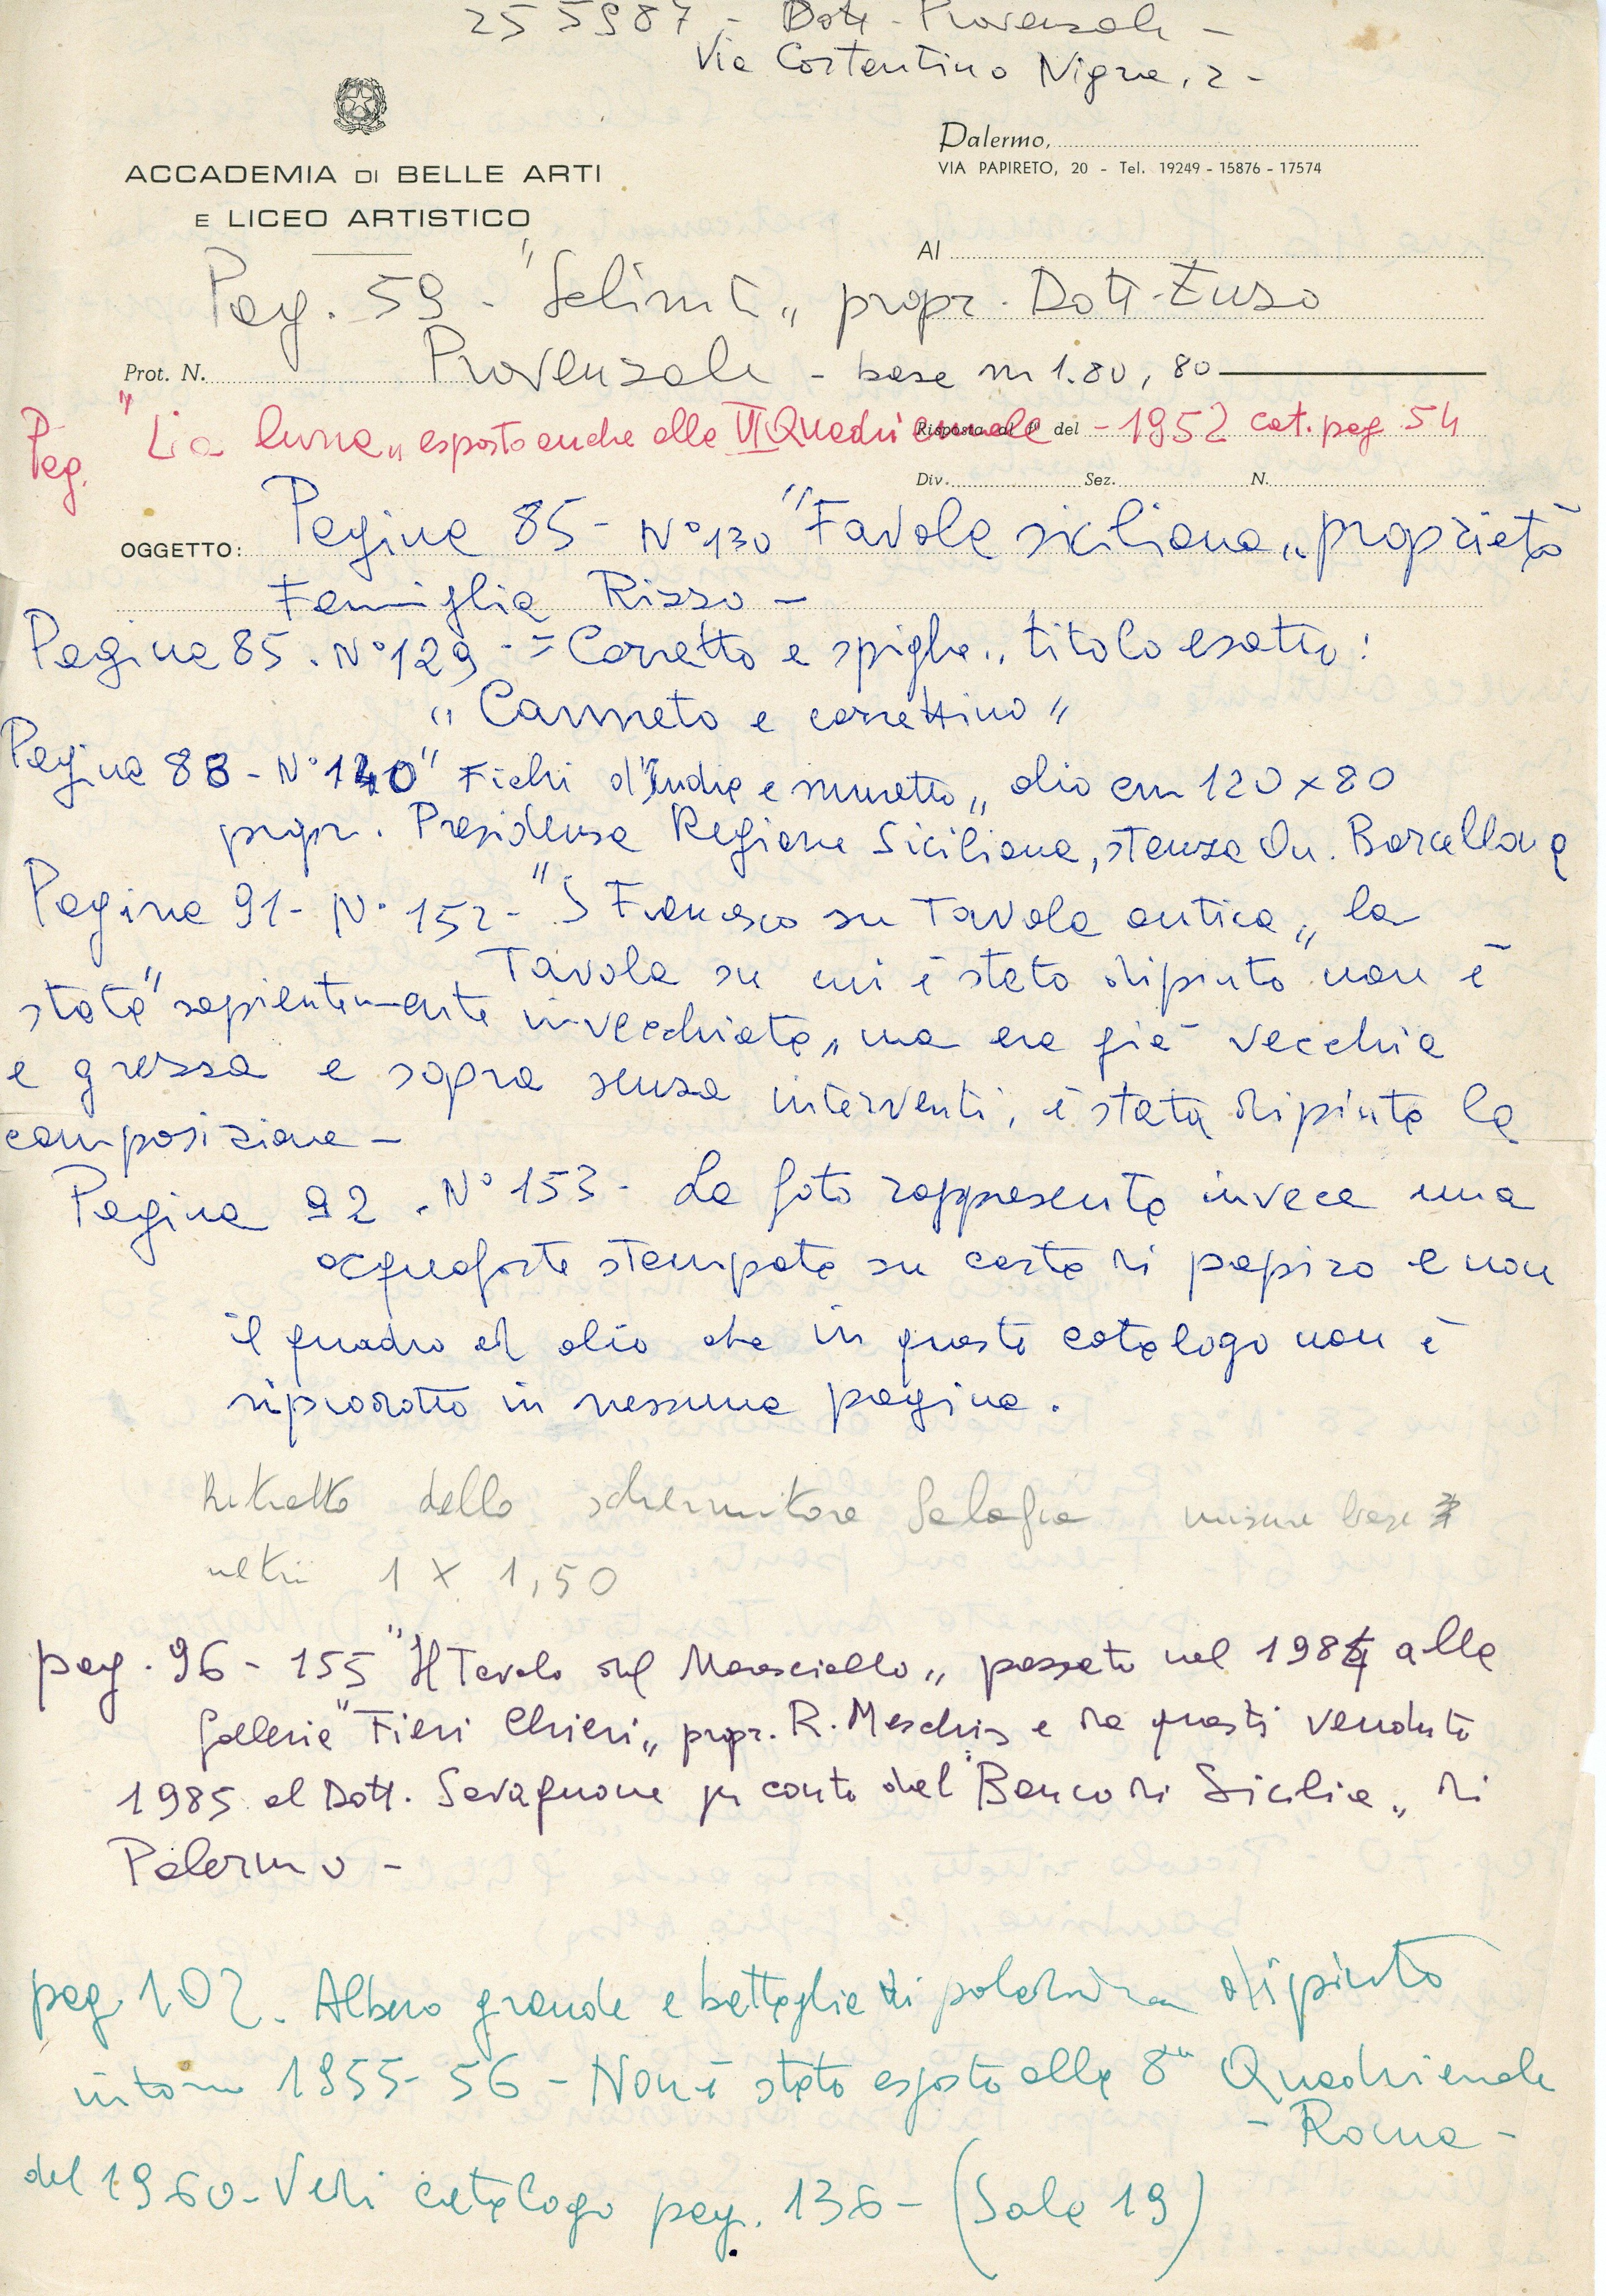 255987 - Dott. Provenzale -
Via Costantino Nigra, 2 -
Palermo,
VIA PAPIRETO, 20 - Tel. 19249 - 15876 - 17574
ACCADEMIA DI BELLE ARTI
E LICEO ARTISTICO
Al
Pag. 59 - "Selinut„ propr. Dott. Enzo
Prot. N. Provenzale - base m 1.80, 80
Pag. "La luna„ esposto anche alla VI Quadriennale - 1952 cat. pag. 54
Risposta al f° del
Div. Sez. N.
OGGETTO: Pagina 85 - N° 130 "Favola siciliana„ proprietà
Famiglia Rizzo -
Pagina 85. N° 129 - = Carretto e spighe„ titolo esatto:
„ Canneto e carrettino "
Pagina 88 - N° 140 " Fichi d'India e muretto„ olio cm 120 x 80
propr. Presidenza Regione Siciliana, stanza On. Barcellona
Pagina 91 - N° 152 - "S Francesco su Tavola antica„ la
Tavola su cui è stato dipinto non è
stata "sapientemente invecchiata„ ma era già vecchia
e grezza e sopra senza interventi, è stata dipinta la
composizione -
Pagina 92 - N° 153 - La foto rappresenta invece una
acquaforte stampata su carta di papiro e non
il quadro ad olio che in questo catalogo non è
riprodotto in nessuna pagina.
Ritratto dello schermitore Salafia misure base
metri 1 x 1,50
pag. 96 - 155 "Il Tavolo del Maresciallo„ passato nel 1984 alla
Galleria "Fieri Chieri„ propr. R. Meschis e da questi venduto
1985 al Dott. Savagnone per conto del "Banco di Sicilia„ di
Palermo -
pag. 102. Albero grande e battaglia di dipinto
intorno 1955-56 - Non è stato esposto alla 8ª Quadriennale
- Roma -
del 1960 - Vedi catalogo pag. 136 - (Sala 19)